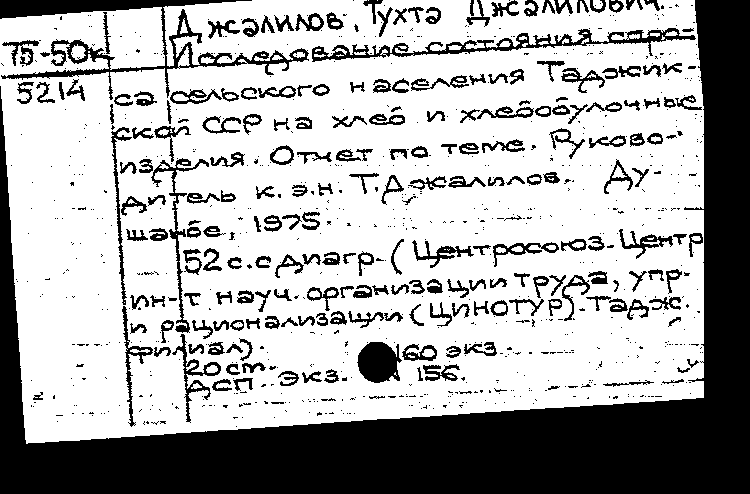 Джалилов, Тухта Джалилович.
75-50к Исследование состояния спро-
5214 са сельского населения Таджик-
ской ССР на хлеб и хлебобулочные
изделия. Отчет по теме. Руково-
дитель к.э.н. Т.Джалилов. Ду-
шанбе, 1975.
52с.с диагр. (Центросоюз. Центр
ин-т науч. организации труда, упр.
и рационализации (ЦИНОТУР). Тадж.
филиал).
20 см. 160 экз.
ДСП экз. N 156.